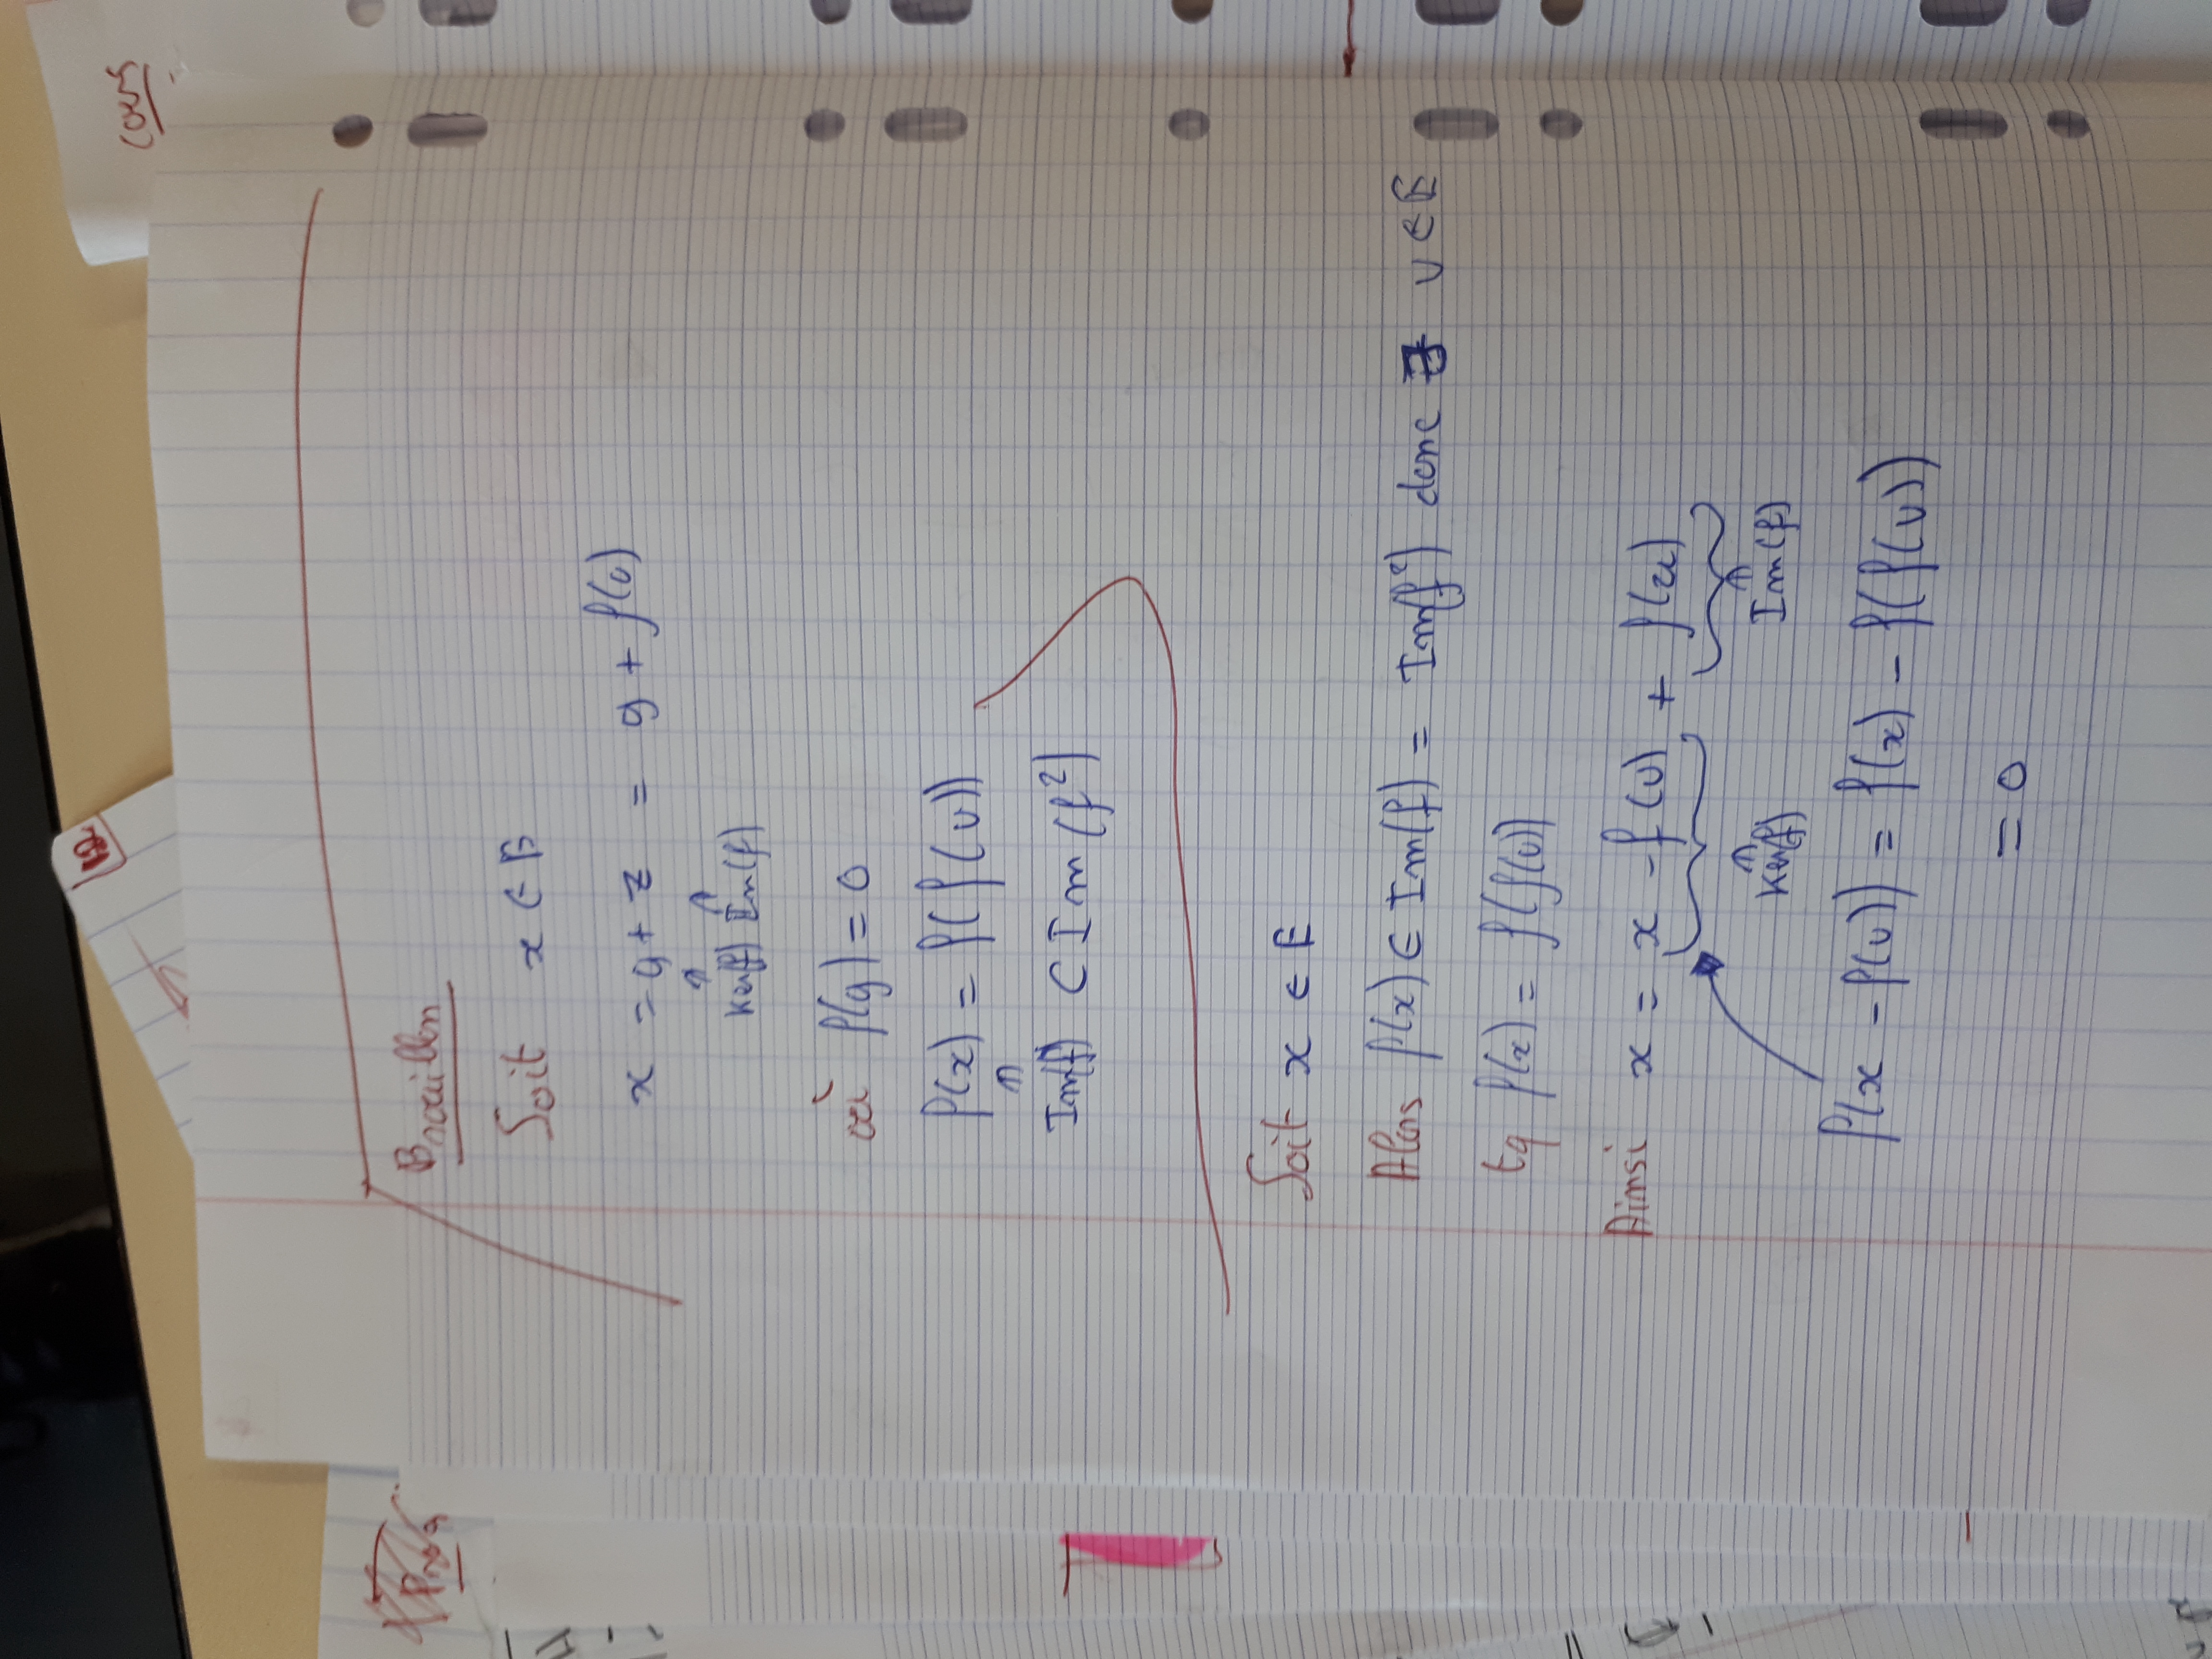 Cours
Brouillon
Soit x ∈ E
x = y + z = y + f(v)
∈ Ker(f) ∈ Im(f)
où f(y) = 0
f(x) = f(f(v))
∈
Im(f) ⊂ Im(f²)
Soit x ∈ E
Alors f(x) ∈ Im(f) = Im(f²) donc ∃ v ∈ E
tq f(x) = f(f(v))
Ainsi x = x - f(v) + f(u)
∈ Ker(f) ∈ Im(f)
f(x - f(v)) = f(x) - f(f(v))
= 0